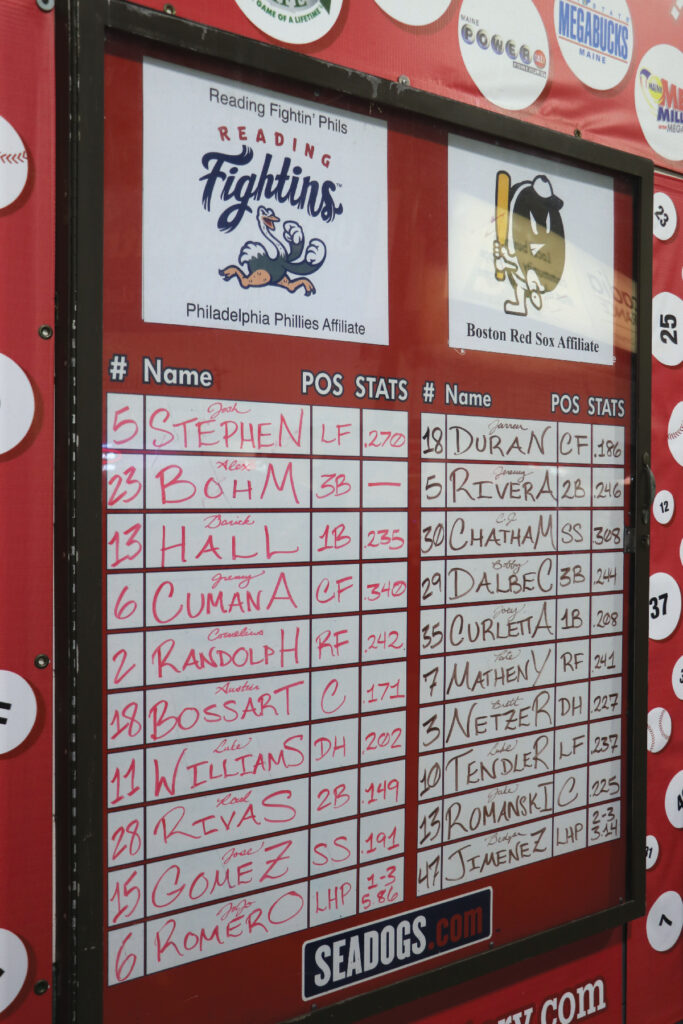 GAME OF A LIFETIME
MAINE
POWERBALL
MEGABUCKS
MAINE
Reading Fightin' Phils
READING
Fightins™
Philadelphia Phillies Affiliate
Boston Red Sox Affiliate
# Name POS STATS
5 Josh STEPHEN LF .270
23 Alec BOHM 3B —
13 Darick HALL 1B .235
6 Jeremy CUMANA CF .340
2 Cornelius RANDOLPH RF .242
18 Austin BOSSART C .171
11 Luke WILLIAMS DH .202
28 Raul RIVAS 2B .149
15 Jose GOMEZ SS .191
6 JoJo ROMERO LHP 1-3 5.86
# Name POS STATS
18 Jarren DURAN CF .186
5 Jeremy RIVERA 2B .246
30 C.J. CHATHAM SS .308
29 Bobby DALBEC 3B .244
35 Joey CURLETTA 1B .208
7 Tate MATHENY RF .241
3 Brett NETZER DH .227
10 Luke TENDLER LF .237
13 Jake ROMANSKI C .225
47 Dedgar JIMENEZ LHP 2-3 3.14
SEADOGS.com
ry.com
23
25
12
37
31
7